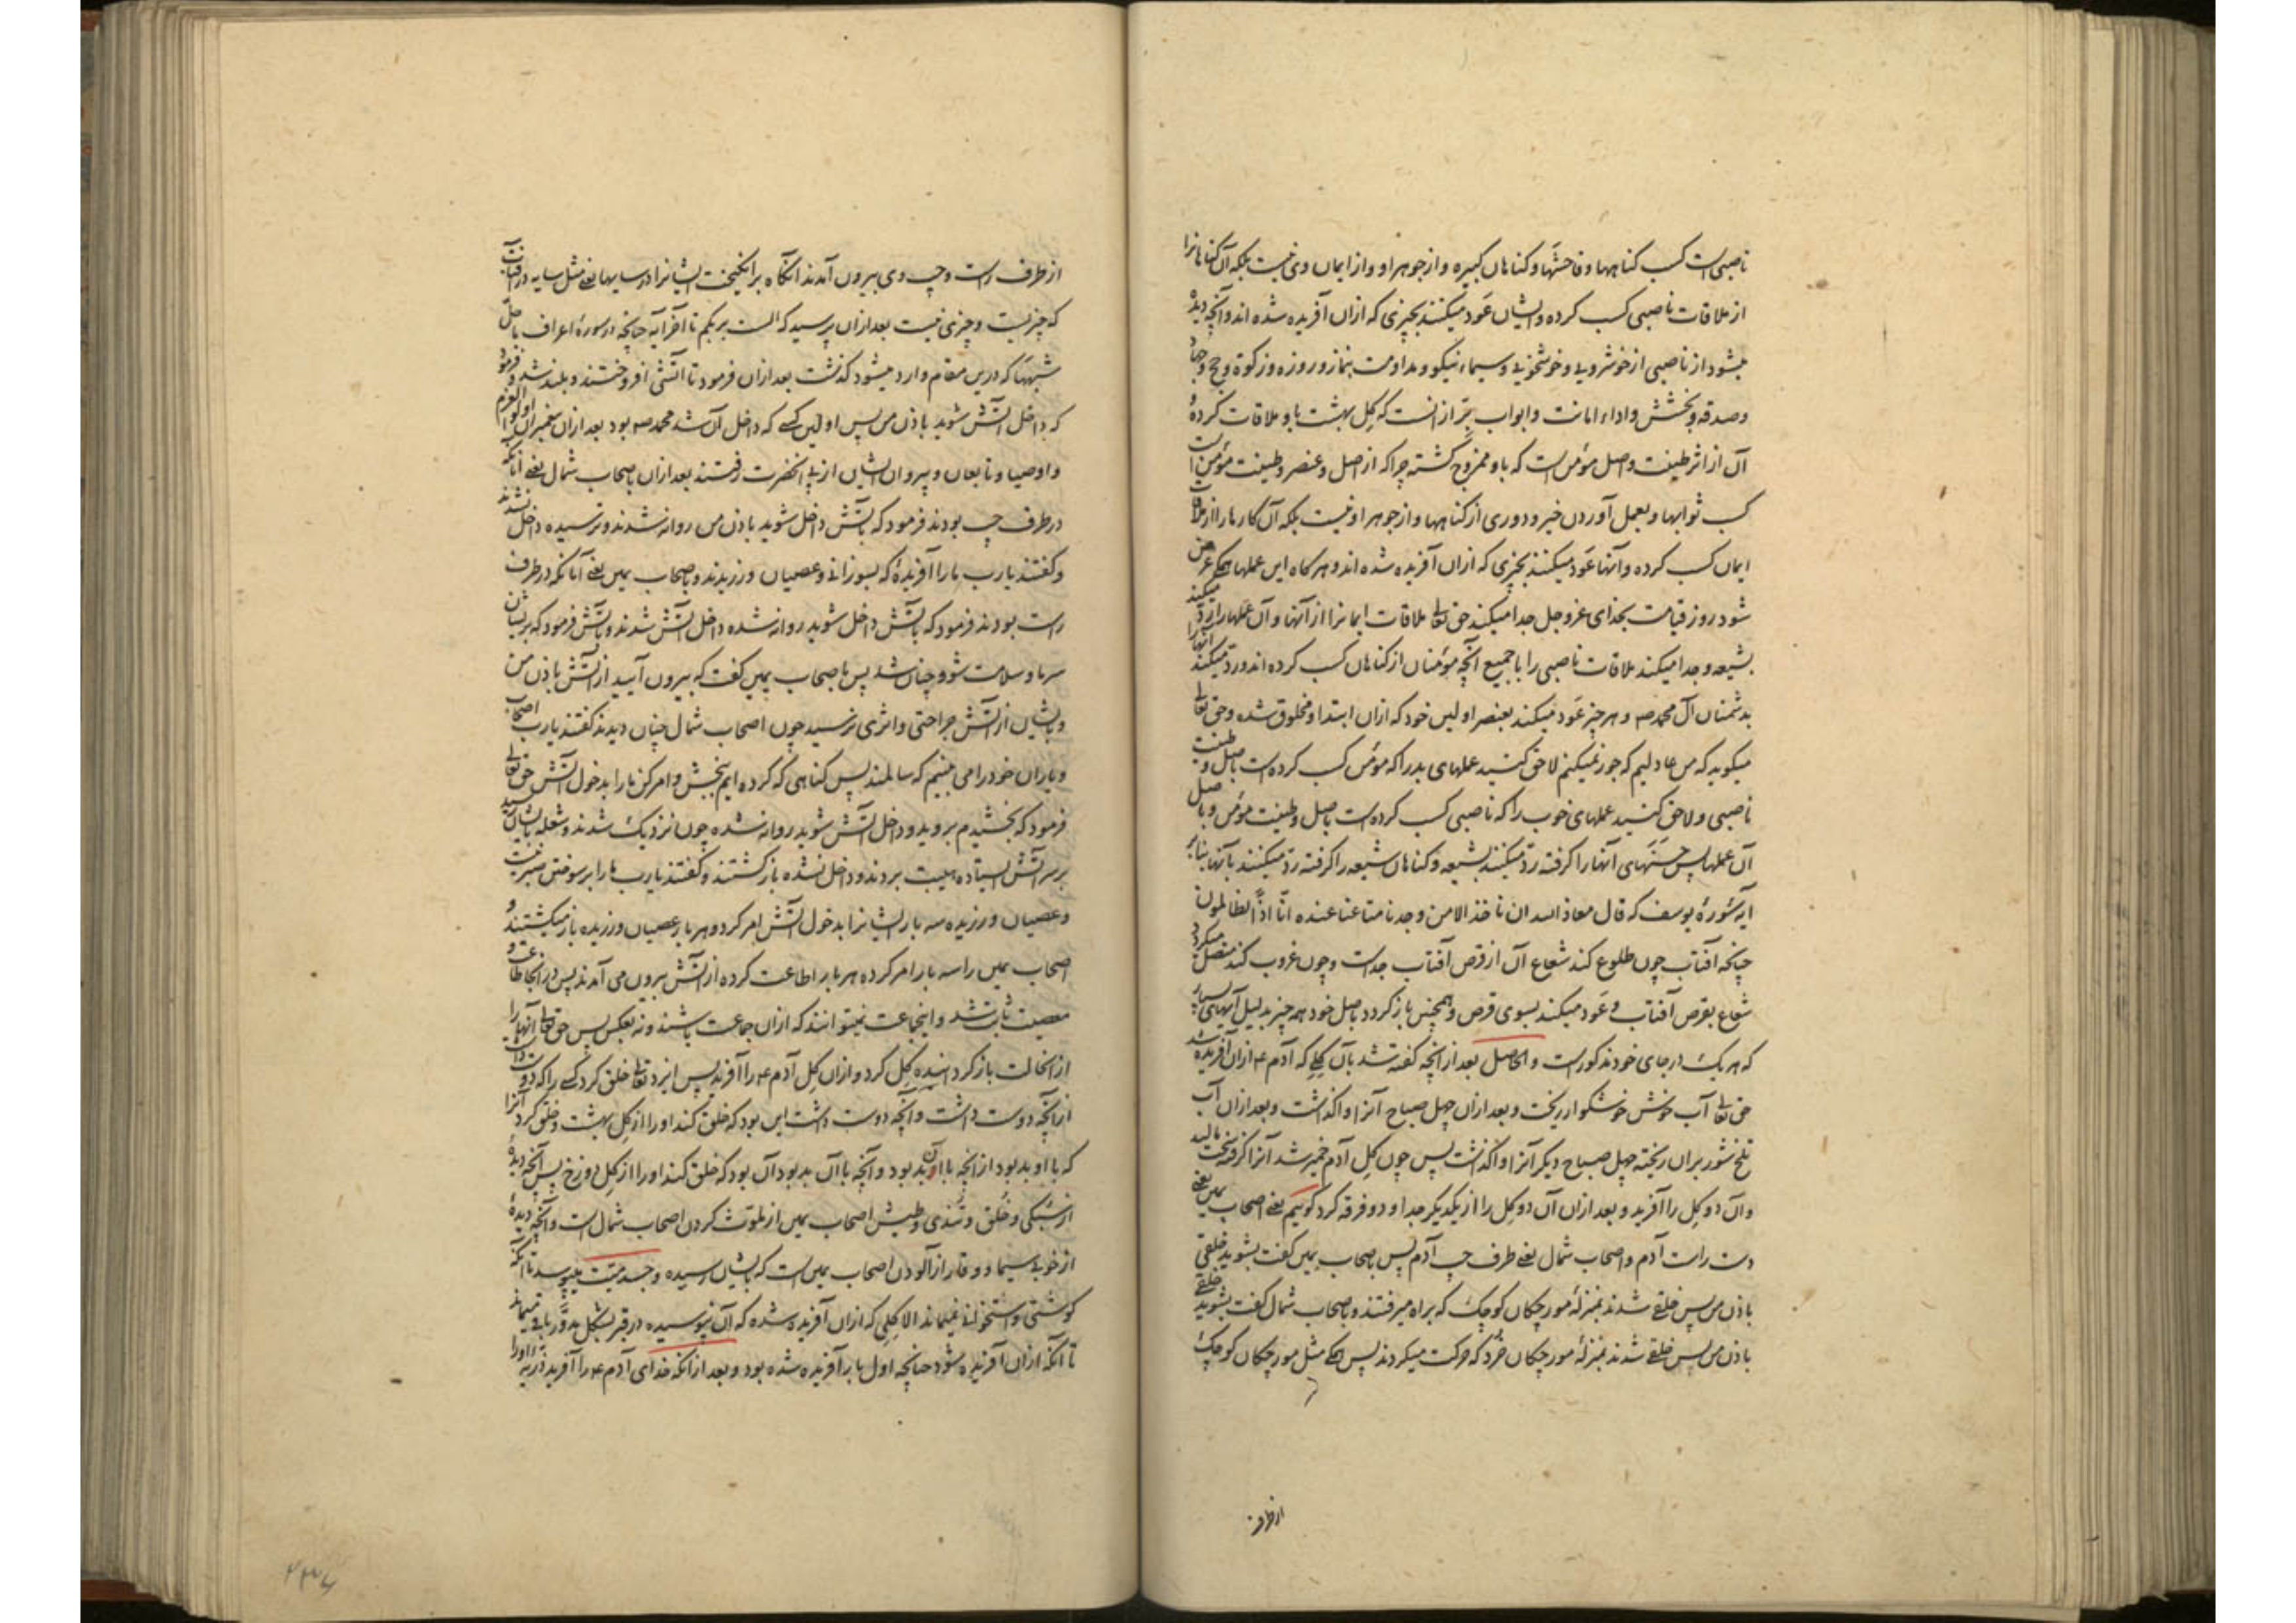 ناصبی است کسب کناهها و فاحشتها و کناهان کبیره و از جوهر او و از ایمان وی نیست بلکه آن کناهانرا
از ملاقات ناصبی کسب کرده و ایشان عَود میکنند بچیزی که ازان آفریده شده اند و آنچه دیدهٔ
میشود از ناصبی از خوشرویی و خوشخویی و سیماء نیکو و مداومت بنماز و روزه و زکوة و حج و جهاد
و صدقه و بخشش و اداء امانت و ابواب برّ ازانست که کِل بهشت باو ملاقات کردهٔ
آن از اثر طینت و اصل مؤمن است که باو ممزوج کشته چرا که از اصل و عنصر و طینت مؤمن است
کسب ثوابها و بعمل آوردن خیر و دوری از کناهها و از جوهر او نیست بلکه آن کارها را از ملاقات
ایمان کسب کرده و آنها عَود میکنند بچیزی که ازان آفریده شده اند و هر کاه این عملها همکی عرض
شود روز قیامت بخدای عزوجل جدا میکند حق تعالی ملاقات ایمانرا از آنها و آن عملها را ردّ میکند
بشیعه و جدا میکند ملاقات ناصبی را با جمیع آنچه مؤمنان از کناهان کسب کرده اند و ردّ میکند آنها را
بدشمنان آل محمد صه و هر چیز عَود میکند بعنصر اولین خود که ازان ابتدا و مخلوق شده و حق تعالی
میکوید که من عادلیم که جور نمیکنم لاحق کنید عملهای بد را که مؤمن کسب کرده است باصل و طینت
ناصبی و لاحق کنید عملهای خوب را که ناصبی کسب کرده است باصل و طینت مؤمن و باصل
آن عملها پس حسنَتهای آنها را کرفته ردّ میکنند بشیعه و کناهان شیعه را کرفته ردّ میکنند بآنها بنابر
ایهٔ سُورهٔ یوسف که قال معاذ الله ان ناخذ الا من وجدنا متاعنا عنده انّا اذًا لظالمون
چنانکه آفتاب چون طلوع کند شعاع آن از قرص آفتاب جداست و چون غروب کند متصل میکردد
شعاع بقرص آفتاب و عَود میکند بسوی قرص و همچنین باز کردد باصل خود همه چیز بدلیل آیهای بسیار
که هر یک در جای خود مذکور است و الحاصل بعد از آنچه کفته شد بآن کِلی که آدم ع ازان آفریده شد
حق تعالی آب خوش خوشکوار ریخت و بعد ازان چهل صباح آنرا واکذاشت و بعد ازان آب
تلخ شور بران ریخته چهل صباح دیکر آنرا واکذاشت پس چون کِل آدم خمیر شد آنرا کرفته سخت مالید
و آن دو کِل را آفرید و بعد ازان آن دو کِل را از یکدیکر جدا و دو فرقه کرد کوئیم یعنی اصحاب یمین یعنی
دست راست آدم و اصحاب شمال یعنی طرف چپ آدم پس باصحاب یمین کفت بشوید خلقی
باذن من پس خلقی شدند بمنزلهٔ مورچکان کوچک که براه میرفتند و باصحاب شمال کفت بشوید خلقی
باذن من پس خلقی شدند بمنزلهٔ مورچکان خُرد که حرکت میکردند پس همکی مثل مورچکان کوچک
از طرف
از طرف راست و چپ وی بیرون آمدند انکاه برانکیخت ایشانرا در سایها یعنی مثل سایه در آفتاب
که چیزیست و چیزی نیست بعد ازان پرسید که الست بربکم تا آخر آیه چنانچه در سورهٔ اعراف با حلّ
شبهها که درین مقام وارد میشود کذشت بعد ازان فرمود تا آتشی افروختند و بلند شد و فرمود
که داخل آتش شوید باذن من پس اولین کسی که داخل آن شد محمد صه بود بعد ازان پیغمبران اولو العزم
و اوصیا و تابعان و پیروان ایشان از پی انحضرت رفتند بعد ازان باصحاب شمال یعنی آنانکه
در طرف چپ بودند فرمود که بآتش داخل شوید باذن من روانه شدند و ترسیده داخل نشدند
و کفتند یا رب ما را آفریدهٔ که بسوزانی و عصیان ورزیدند و باصحاب یمین یعنی آنانکه در طرف
راست بودند فرمود که بآتش داخل شوید روانه شده داخل آتش شدند و بآتش فرمود که بر ایشان
سرما و سلامت شو و چنان شد پس باصحاب یمین کفت که بیرون آیید از آتش باذن من
و بایشان از آتش جراحتی و اثری نرسید چون اصحاب شمال چنان دیدند کفتند یا رب اصحاب
و یاران خود را می بینیم که سالمند پس کناهی که کرده ایم ببخش و امر کن ما را بدخول آتش حق تعالی
فرمود که بخشیدم بروید و داخل آتش شوید روانه شده چون نزدیک شدند و شعله بایشان رسید
بر سر آتش ایستاده هیبت بردند و داخل نشده باز کشتند و کفتند یا رب ما را بر سوختن صبر نیست
و عصیان ورزیده سه بار ایشانرا بدخول آتش امر کرد و هر بار عصیان ورزیده باز میکشتند و
اصحاب یمین را سه بار امر کرده هر بار اطاعت کرده از آتش بیرون می آمدند پس در انجا طاعت و
معصیت ثابت شد و اینجماعت نمیتوانند که ازان جماعت باشند و نه بعکس پس حق تعالی آنها را
از انحالت باز کردانیده کِل کرد و ازان کِل آدم ع را آفرید پس ایزد تعالی خلق کرد کسی را که دوست داشت
از آنچه دوست داشت و آنچه دوست داشت این بود که خلق کند او را از کِل بهشت و خلق کرد آنرا
که با او بد بود از آنچه با آن بد بود و آنچه با آن بد بود آن بود که خلق کند او را از کِل دوزخ پس آنچه دیدهٔ
از سبکی و خُلق و تُندی و طیش اصحاب یمین از ملوّث کردن اصحاب شمال است و آنچه دیدهٔ
از خوبی سیما و وقار از آلودن اصحاب یمین است که بایشان رسیده و جسد میّت میپوسد تا آنکه
کوشتی و استخوانی نمیماند الا کِلی که ازان آفریده شده که آن نپوسیده در قبر بشکل مدوّر باقی میماند
تا آنکه ازان آفریده شود چنانچه اول بار آفریده شده بود و بعد از آنکه خدای آدم ع را آفرید ذُرّیّه او را